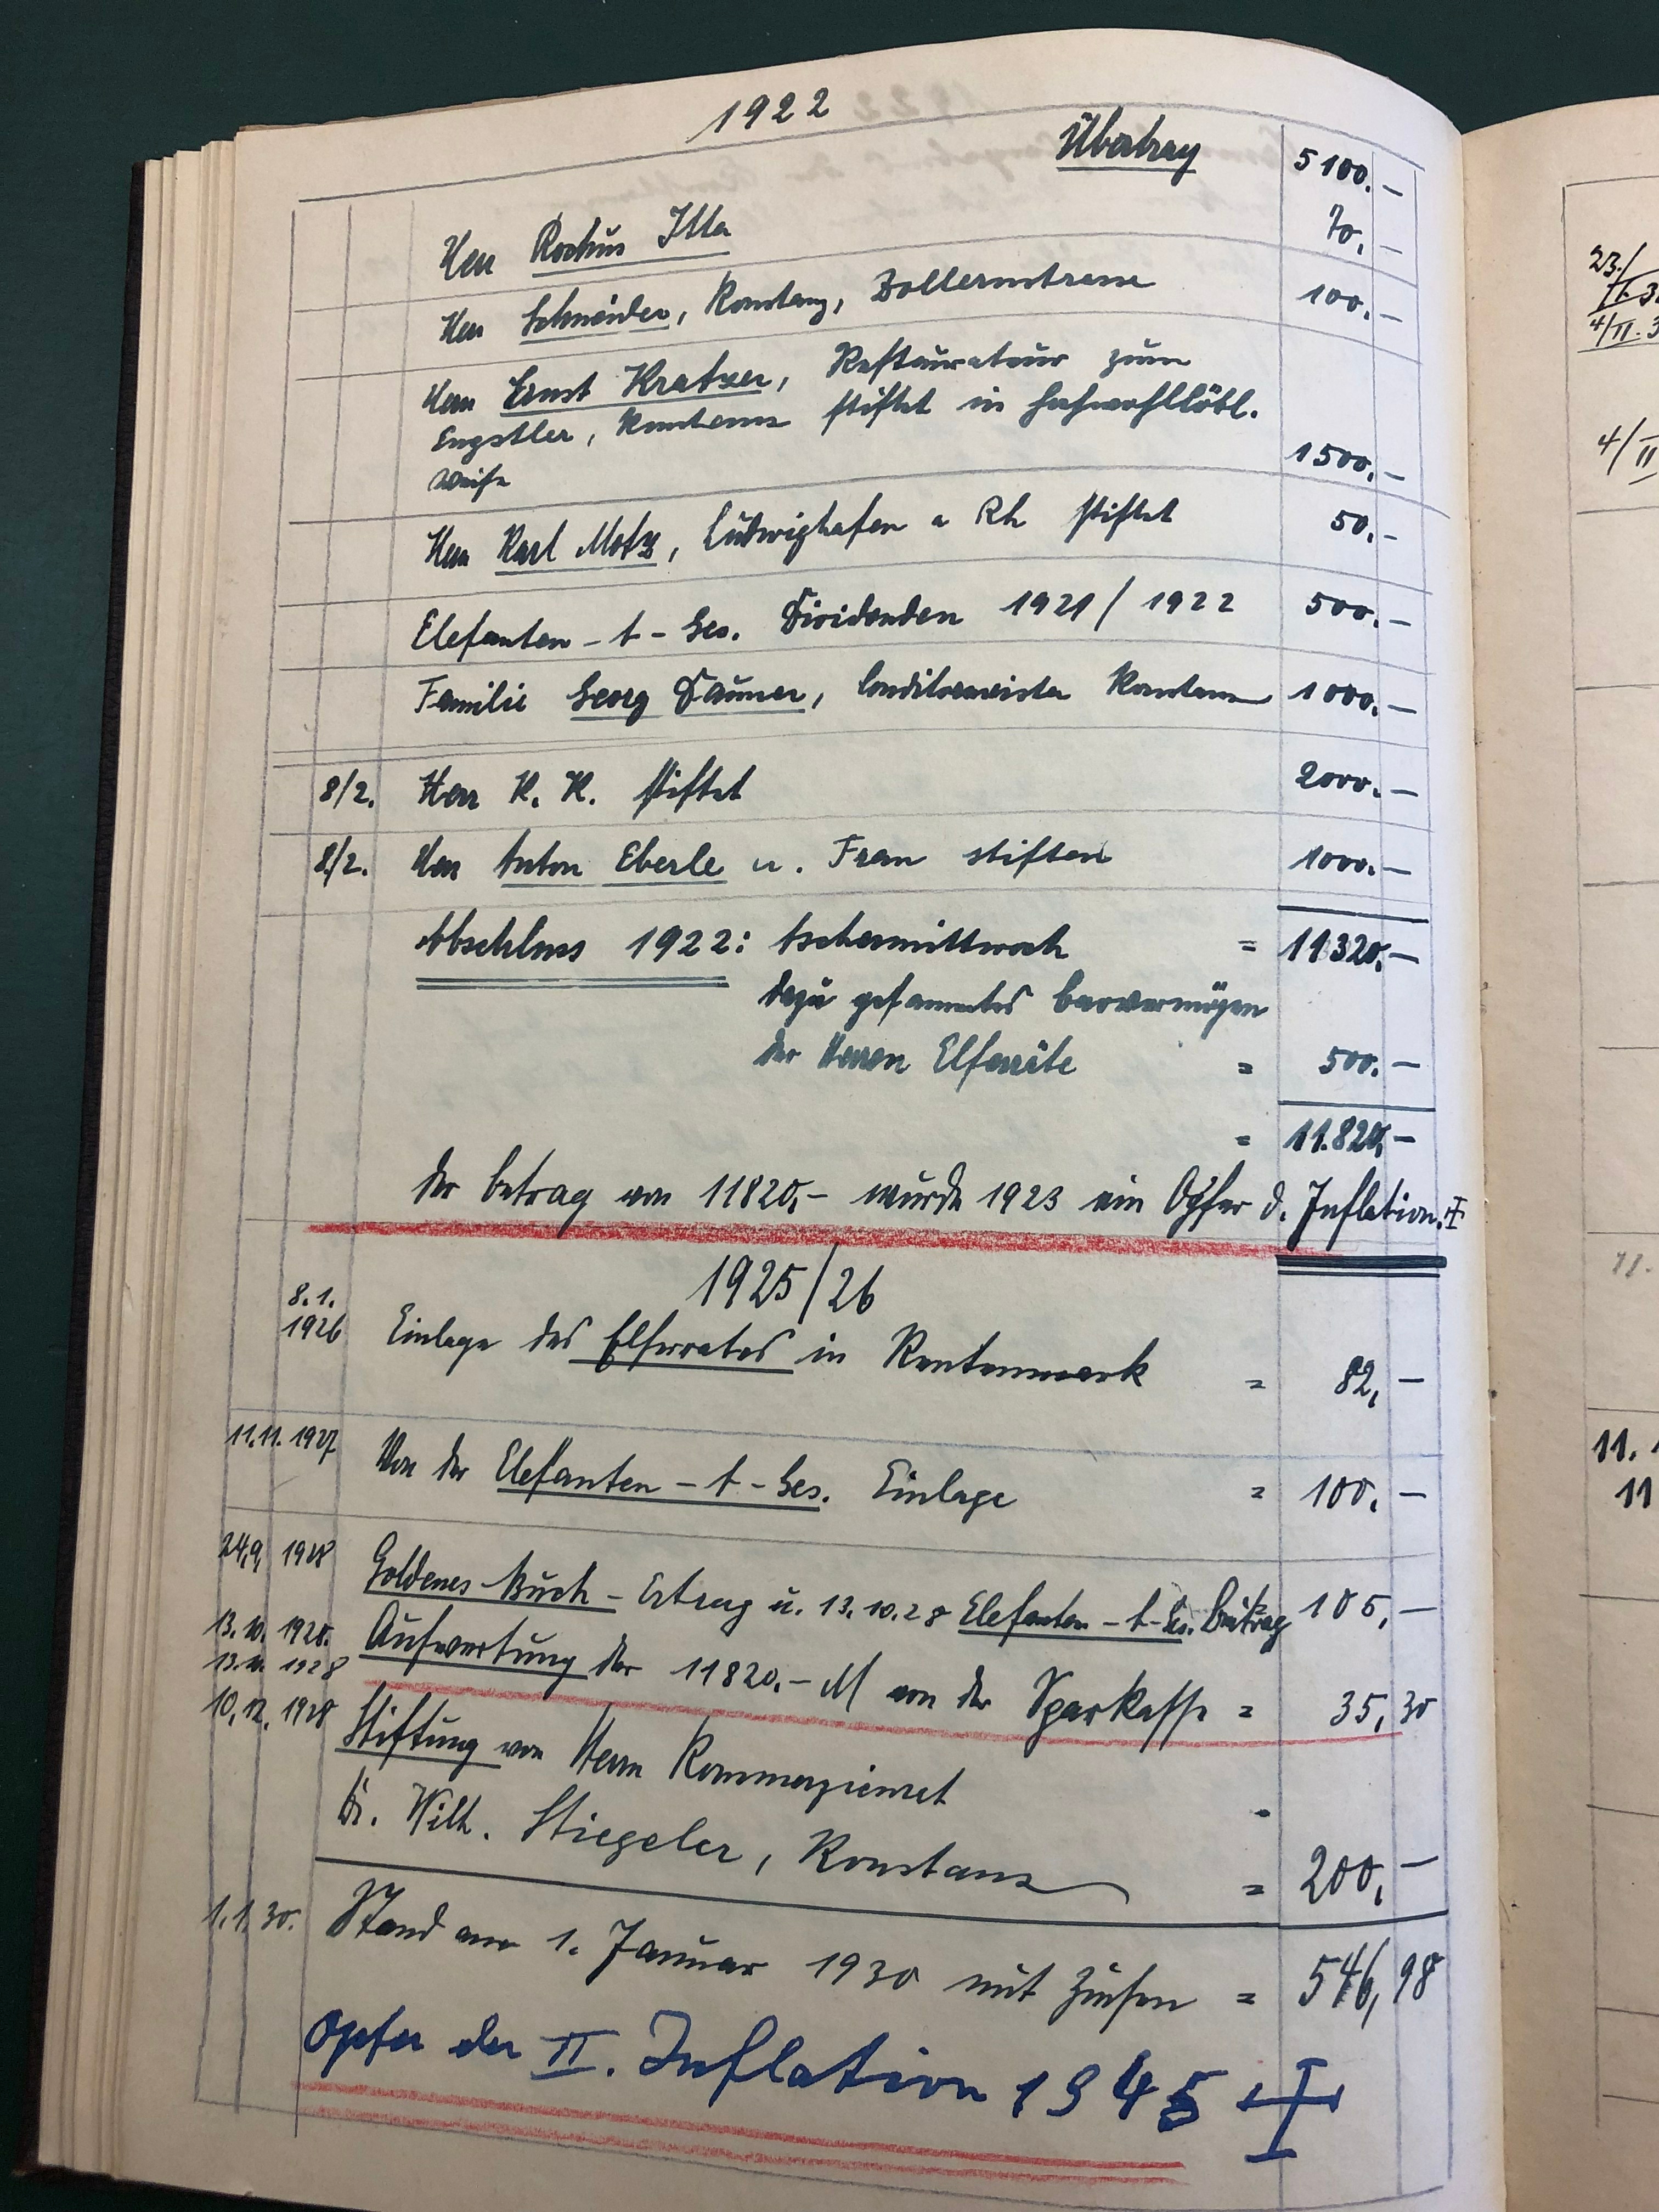 1922
Übertrag 5100.—
Herr Rochus Itta 70.—
Herr Schneider, Konstanz, Zollernstrasse 100.—
Herr Ernst Kratzer, Restaurateur zum
Engstler, Konstanz stiftet in hochwohllöbl.
Weise 1500.—
Herr Karl Motz, Ludwighafen a Rh stiftet 50.—
Elefanten-A-Ges. Dividenden 1921/1922 500.—
Familie Georg Dauner, Conditormeister Konstanz 1000.—
8/2. Herr K. K. stiftet 2000.—
8/2. Herr Anton Eberle u. Frau stiften 1000.—
Abschluss 1922: Aschermittwoch = 11320.—
dazu gesammeltes Barvermögen
der Herren Elferräte = 500.—
= 11.820,—
Der Betrag von 11820,— wurde 1923 ein Opfer d. Inflation.
1925/26
8.1.
1926 Einlage des Elferrates in Rentenmark = 82,—
11.11.1927 Von der Elefanten-A-Ges. Einlage = 100.—
24.9. 1928 Goldenes-Buch-Ertrag u. 13.10.28 Elefanten-A-Ges. Beitrag 105,—
13.10. 1928. Aufwertung der 11820.— M von der Sparkasse = 35,30
1928
10.12. 1928 Stiftung von Herrn Kommerzienrat
Dr. Wilh. Stiegeler, Konstanz = 200,—
1.1.30. Stand am 1. Januar 1930 mit Zinsen = 546,98
Opfer der II. Inflation 1945
23./
4/II.3
4/II
11.
11.1
11